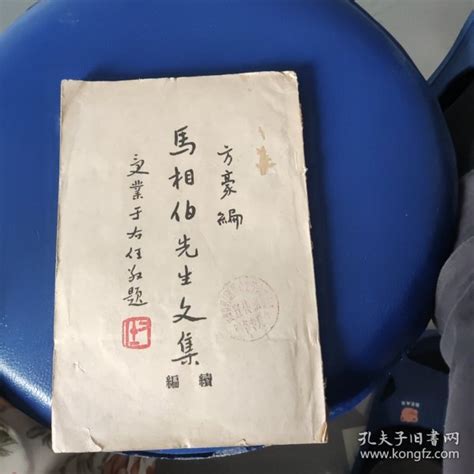 方豪編
馬相伯先生文集
續編
受業于右任敬題
孔夫子旧书网
www.kongfz.com